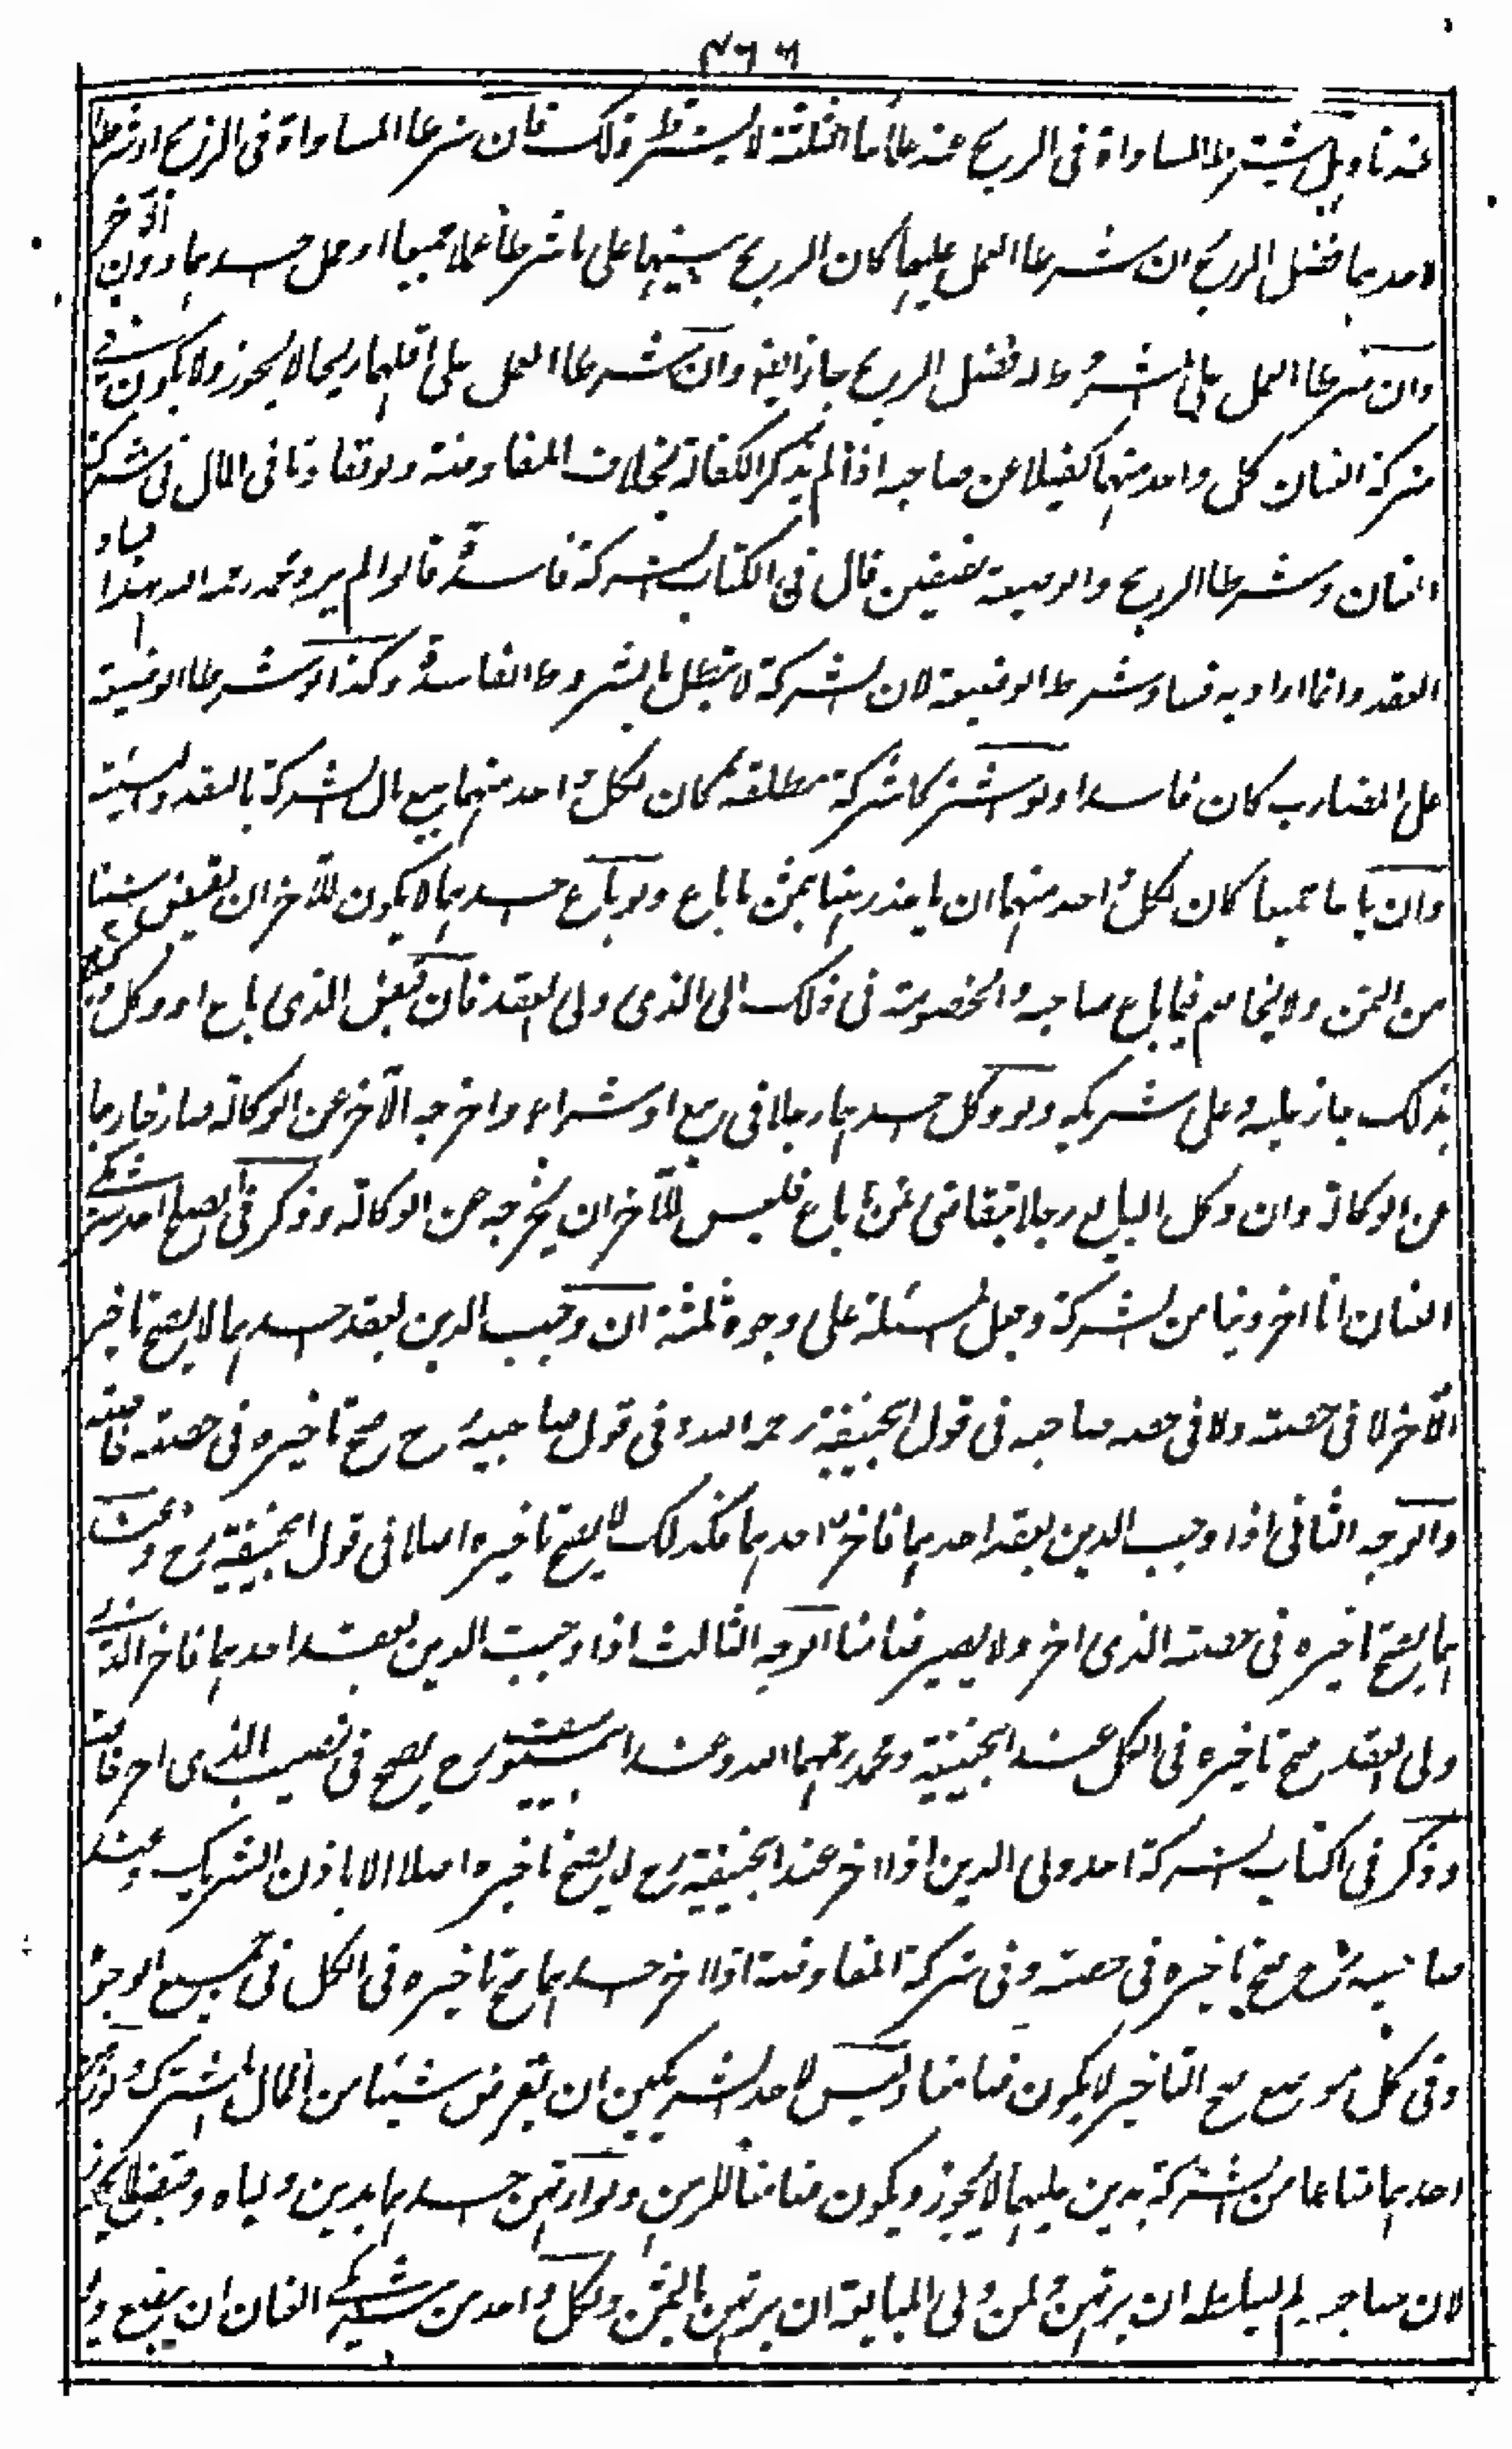 ٤٦٦
عنه تاويل يشترط المساواة في الربح عند علمائنا الثلثة لا يشترط ذلك فان شرطا المساواة في الربح او شرطا
لاحدهما فضل الربح ان شرطا العمل عليهما كان الربح بينهما على ما شرطا عملا جميعا او عمل احدهما دون الآخر
وان شرطا العمل على المشروط له فضل الربح جاز ايضا وان شرطا العمل على اقلهما ربحا لا يجوز ولا يكون في
شركة العنان كل واحد منهما كفيلا عن صاحبه اذا لم يذكر الكفالة بخلاف المفاوضة ولو تفاوتا في المال في شركة
العنان وشرطا الربح والوضيعة نصفين قال في الكتاب الشركة فاسدة قالوا لم يرد محمد رحمه الله بهذا فساد
العقد وانما اراد به فساد شرط الوضيعة لان الشركة لا تبطل بالشروط الفاسدة وكذا لو شرطا الوضيعة
على المضارب كان فاسدا ولو اشتركا شركة مطلقة كان لكل واحد منهما بيع مال الشركة بالنقد والنسيئة
وان باعا جميعا كان لكل واحد منهما ان ياخذ رهنا بثمن ما باع ولو باع احدهما لا يكون للآخر ان يقبض شيئا
من الثمن ولا يخاصم فيما باع صاحبه والخصومة في ذلك الى الذي ولى العقد فان قبض الذي باع او وكل وكيلا
بذلك جاز عليه وعلى شريكه ولو وكل احدهما رجلا في بيع او شراء واخرجه الآخر عن الوكالة صار خارجا
عن الوكالة وان وكل البايع رجلا بتقاضي ثمن ما باع فليس للآخر ان يخرجه عن الوكالة وذكر في الصلح احد شريكي
العنان اذا اخر دينا من الشركة وجعل المسئلة على وجوه ثلثة ان وجب الدين بعقد احدهما لا يصح تاخير
الآخر لا في حصته ولا في حصة صاحبه في قول ابيحنيفة رحمه الله وفي قول صاحبيه رح صح تاخيره في حصته خاصة
والوجه الثاني اذا وجب الدين بعقد احدهما فاخر احدهما فكذلك لا يصح تاخيره اصلا في قول ابيحنيفة رح وعند
هما يصح تاخيره في حصته الذي اخر ولا يصير ضامنا الوجه الثالث اذا وجبت الدين بعقد احدهما فاخر الذي
ولى العقد صح تاخيره في الكل عند ابيحنيفة ومحمد رحمهما الله وعند ابي يوسف رح يصح في نصيب الذي اخر خاصة
وذكر في كتاب الشركة احد ولى الدين اذا اخر عند ابيحنيفة رح لا يصح تاخيره اصلا الا باذن الشريك وعند
صاحبيه رح صح تاخيره في حصته وفي شركة المفاوضة اذا اخر احدهما صح تاخيره في الكل في جميع الوجوه
وفي كل موضع صح التاخير لا يكون ضامنا وليس لاحد الشريكين ان يقرض شيئا من المال المشترك ولو رهن
احدهما متاعا من الشركة بدين عليهما لا يجوز ويكون ضامنا للرهن ولو ارتهن احدهما بدين وليا ه وقبض لا يجوز
لان صاحبه لم يسلطه ان يرتهن ولمن ولى المبايعة ان يرتهن بالثمن ولكل واحد من شريكي العنان ان يبضع و